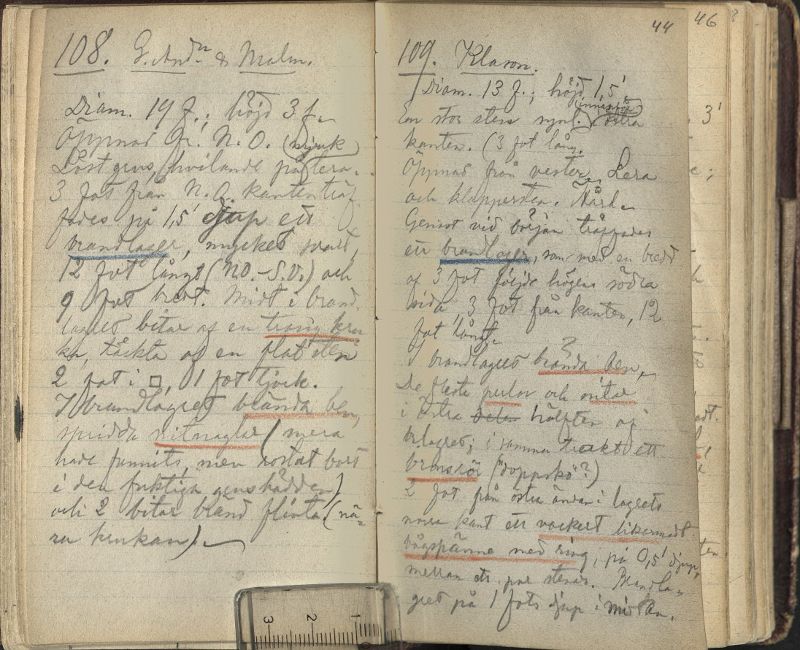 108. G. And:n & Malm.
Diam. 19 f.; höjd 3 f.
Öppnad fr. N.O. (mjuk
Löst grus hvilande på lera.
3 fot från N.O. kanten träf-
fades på 1,5' djup ett
brandlager, mycket svart,
12 fot långt (NO.-S.V.) och
9 fot bredt. Midt i brand-
lagret bitar af en trasig kru-
ka, täckta af en flat sten
2 fot i □, 0,1 fot tjock.
I brandlagret brända ben,
spridda nitnaglar (mera
hade funnits, men rostat bort
i den fuktiga grusbädden)
och 2 bitar bland flinta (nä-
ra krukan).
44 46
109. Klason.
Diam. 13 f.; höjd 1,5'.
En stor sten synl. östra
kanten. (3 fot lång.
Öppnad från vester. Lera
och klappersten. Hård.
Genast vid början träffades
ett brandlager, som med en bredd
af 3 fot följde högens södra
sida, 3 fot från kanten, 12
fot långt.
I brandlagret brända ben.
?
De flesta perlor och nitar
i östra hälften af
lagret; i samma trakt ett
bronsrör ("doppsko"?)
2 fot från östra ändan i lagrets
norra kant ett vackert likarmadt
bågspänne med ring, på 0,5' djup,
mellan ett par stenar. Brandla-
gret på 1 fots djup i midten.
3'
3 2 1